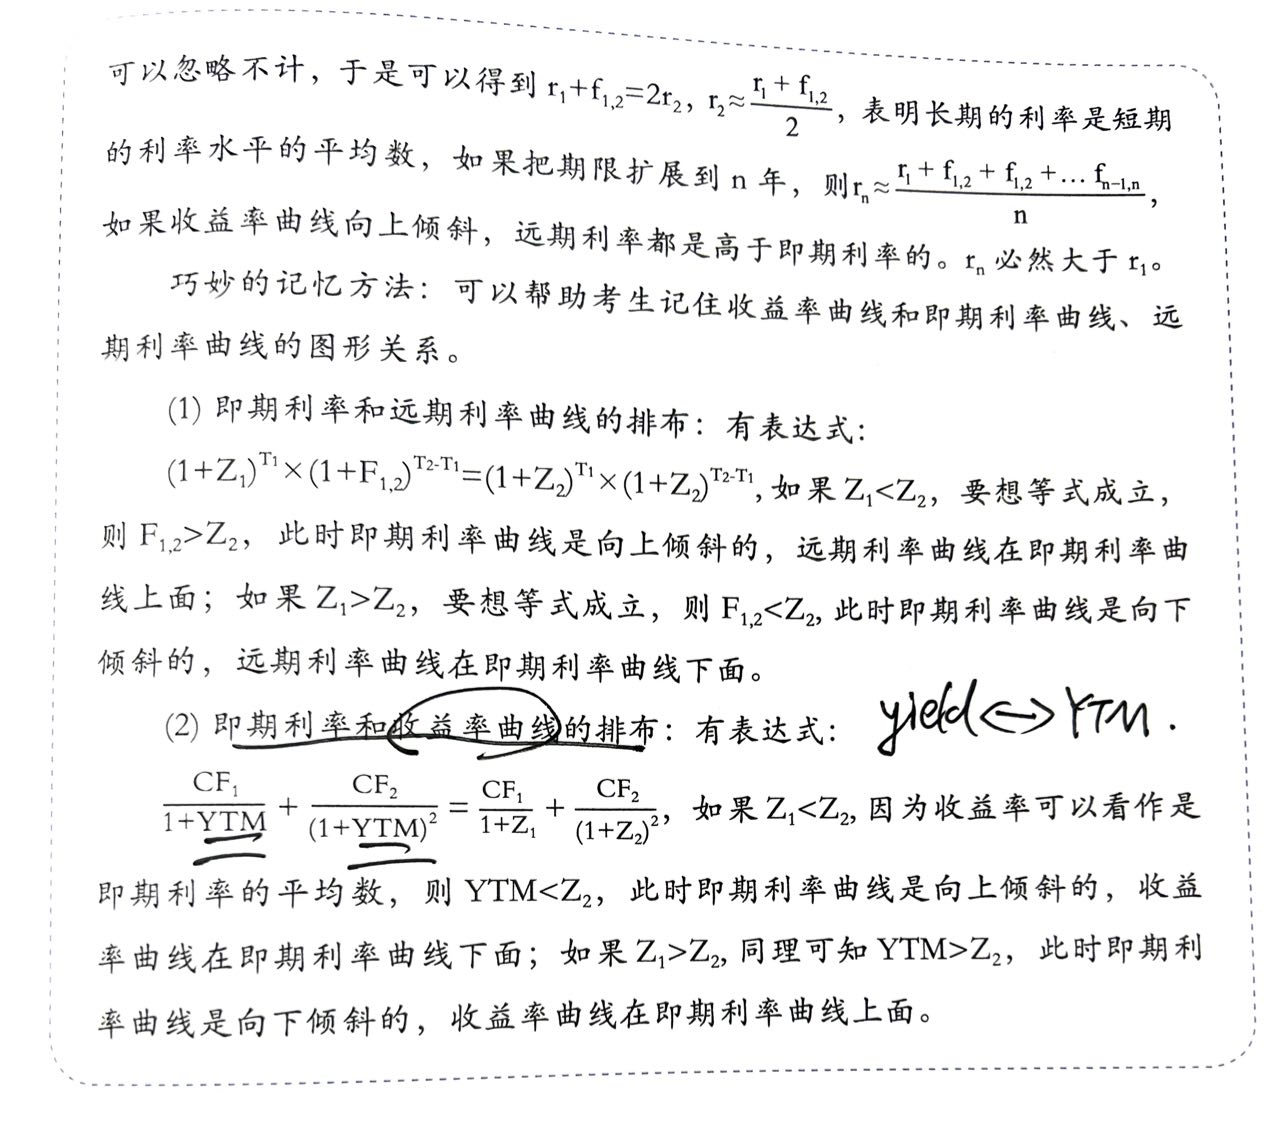 可以忽略不计，于是可以得到 r₁+f₁,₂=2r₂，r₂≈(r₁ + f₁,₂)/2，表明长期的利率是短期
的利率水平的平均数，如果把期限扩展到 n 年，则 rₙ≈(r₁ + f₁,₂ + f₁,₂ +… fₙ₋₁,ₙ)/n，
如果收益率曲线向上倾斜，远期利率都是高于即期利率的。rₙ 必然大于 r₁。
巧妙的记忆方法：可以帮助考生记住收益率曲线和即期利率曲线、远
期利率曲线的图形关系。
(1) 即期利率和远期利率曲线的排布：有表达式：
(1+Z₁)^T1×(1+F₁,₂)^T2-T1=(1+Z₂)^T1×(1+Z₂)^T2-T1, 如果 Z₁<Z₂，要想等式成立，
则 F₁,₂>Z₂，此时即期利率曲线是向上倾斜的，远期利率曲线在即期利率曲
线上面；如果 Z₁>Z₂，要想等式成立，则 F₁,₂<Z₂, 此时即期利率曲线是向下
倾斜的，远期利率曲线在即期利率曲线下面。
(2) 即期利率和收益率曲线的排布：有表达式： yield<->YTM.
CF₁/(1+YTM) + CF₂/(1+YTM)² = CF₁/(1+Z₁) + CF₂/(1+Z₂)²，如果 Z₁<Z₂, 因为收益率可以看作是
即期利率的平均数，则 YTM<Z₂，此时即期利率曲线是向上倾斜的，收益
率曲线在即期利率曲线下面；如果 Z₁>Z₂, 同理可知 YTM>Z₂，此时即期利
率曲线是向下倾斜的，收益率曲线在即期利率曲线上面。